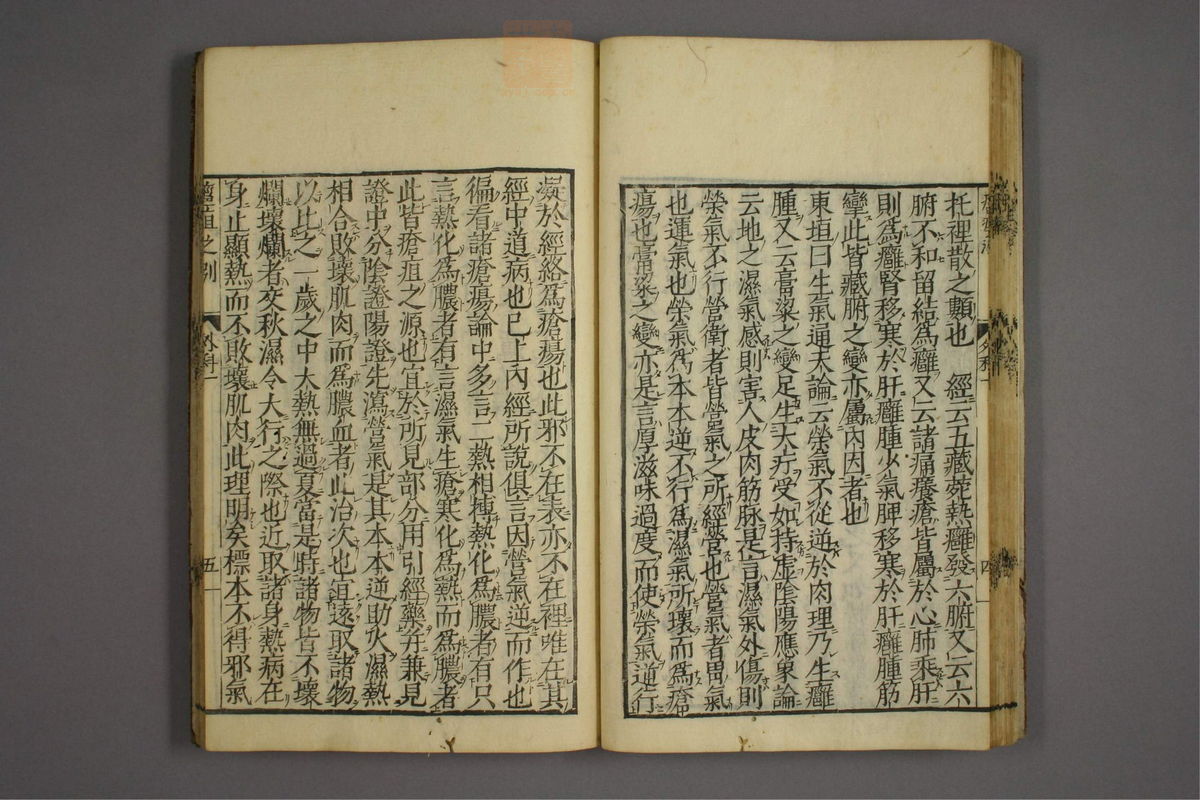 托裡散之類也　經云五藏菀熱癰發六腑又云六
腑不和留結爲癰又云諸痛癢瘡皆屬於心肺乘肝
則爲癰腎移寒於肝癰腫少氣脾移寒於肝癰腫筋
攣此皆藏腑之變亦屬內因者也
東垣曰生氣通天論云榮氣不從逆於肉理乃生癰
腫又云膏粱之變足生大疔受如持虛陰陽應象論
云地之濕氣感則害人皮肉筋脉是言濕氣外傷則
榮氣不行營衛者皆營氣之所經營也營氣者胃氣
也運氣也榮氣爲本本逆不行爲濕氣所壞而爲瘡
瘍也膏粱之變亦是言厚滋味過度而使榮氣逆行
凝於經絡爲瘡瘍也此邪不在表亦不在裡唯在其
經中道病也已上內經所說俱言因營氣逆而作也
徧看諸瘡瘍論中多言二熱相搏熱化爲膿者有只
言熱化爲膿者有言濕氣生瘡寒化爲熱而爲膿者
此皆瘡疽之源也宜於所見部分用引經藥并兼見
證中分陰證陽證先瀉營氣是其本本逆助火濕熱
相合敗壞肌肉而爲膿血者此治次也宜遠取諸物
以比之一歲之中大熱無過夏當是時諸物皆不壞
爛壞爛者交秋濕令大行之際也近取諸身熱病在
身止顯熱而不敗壞肌肉此理明矣標本不得邪氣
之別
外科一
五
外科一
四